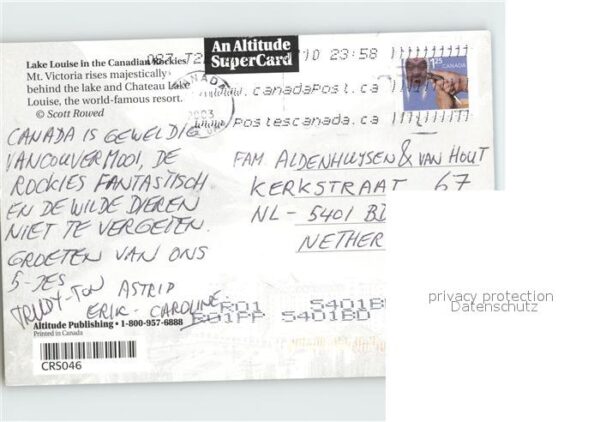 Lake Louise in the Canadian Rockies
Mt. Victoria rises majestically
behind the lake and Chateau Lake
Louise, the world-famous resort.
© Scott Rowed
An Altitude
SuperCard
10 23:58
CANADA
2003
.canadaPost.ca
Postescanada.ca
1.25
CANADA
CANADA IS GEWELDIG
VANCOUVER MOOI, DE
ROCKIES FANTASTISCH
EN DE WILDE DIEREN
NIET TE VERGETEN.
GROETEN VAN ONS
5-JES
TRUDY-TON ASTRID
ERIK - CAROLINE
FAM ALDENHUYSEN & VAN HOUT
KERKSTRAAT 67
NL - 5401 BD
NETHER
R01 5401BD
R01PP 5401BD
Altitude Publishing • 1-800-957-6888
Printed in Canada
CRS046
privacy protection
Datenschutz